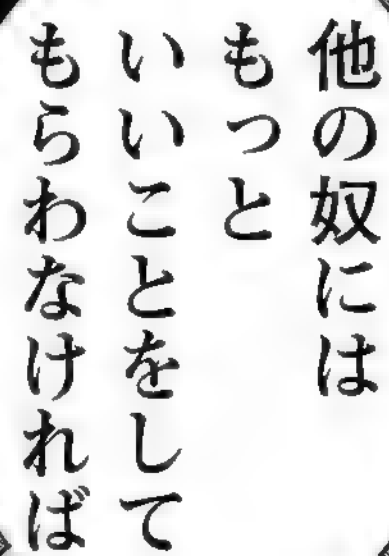 他の奴には
もっと
いいことをして
もらわなければ